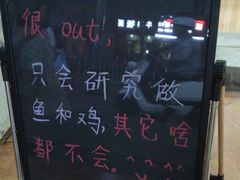 很out!,
只会研究做
鱼和鸡,其它啥
都不会。^_^